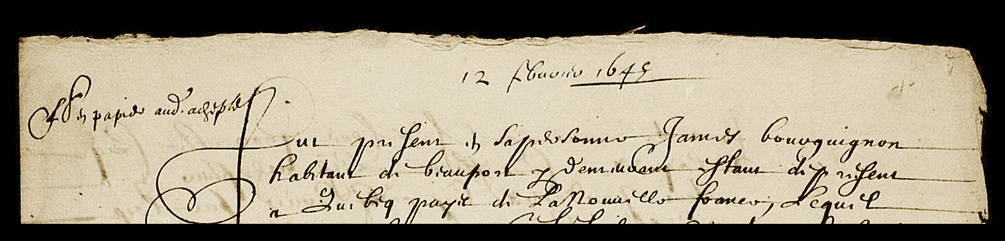 12 febvrier 1645
en papier aud. achepteur
Fut present en sa personne James bourguignon
habitant de beauport y demeurant estant de present
a Quebeq pays de la Nouvelle france, Lequel